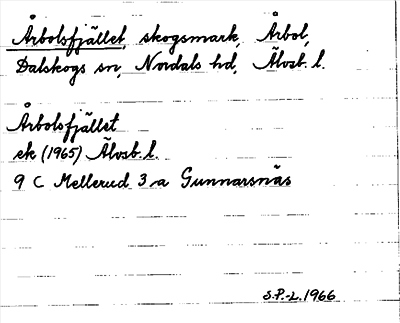 Årbolsfjället, skogsmark, Årbol,
Dalskogs sn, Nordals hd, Älvsb. l.
Årbolsfjället
ek (1965) Älvsb. l.
9 C Mellerud 3 a Gunnarsnäs
S.P.-L. 1966